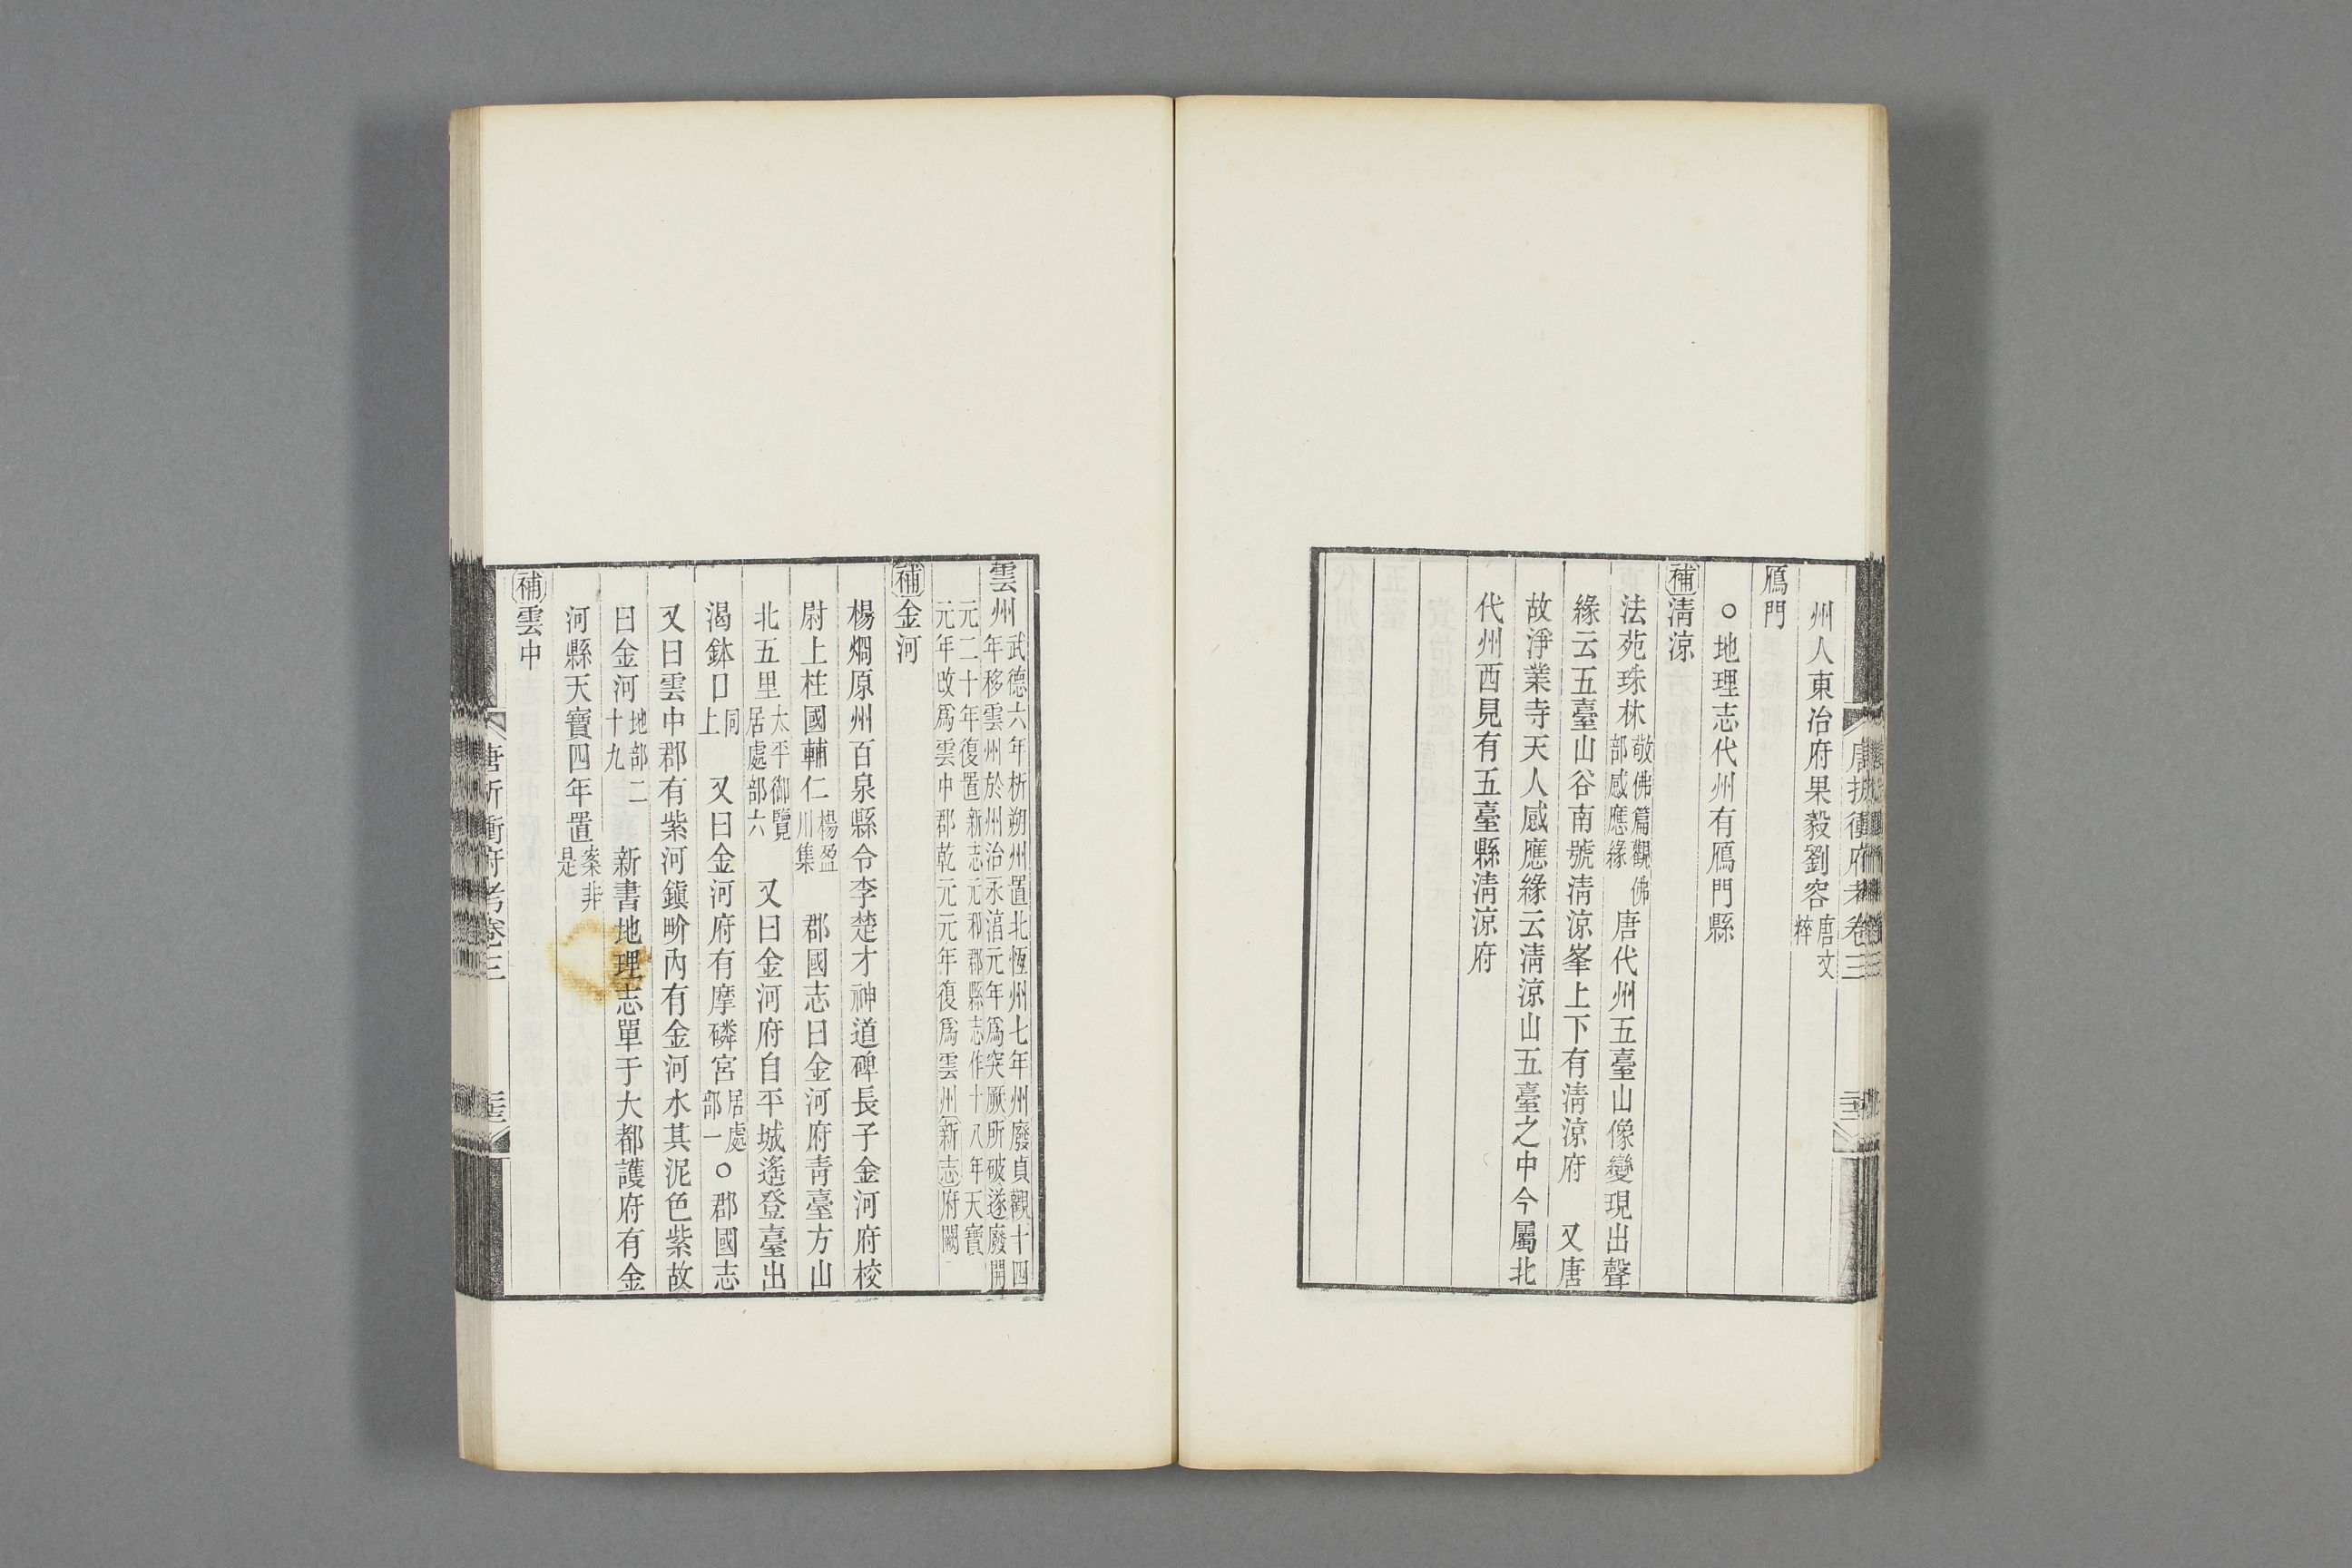 州人東治府果毅劉容唐文粹
鴈門
○地理志代州有鴈門縣
補淸涼
法苑珠林敬佛篇觀佛部感應緣唐代州五臺山像變現出聲
緣云五臺山谷南號淸涼峯上下有淸涼府　又唐
故淨業寺天人感應緣云淸涼山五臺之中今屬北
代州西見有五臺縣淸涼府
唐折衝府考卷三
雲州武德六年析朔州置北恆州七年州廢貞觀十四
年移雲州於州治永淳元年爲突厥所破遂廢開
元二十年復置新志元和郡縣志作十八年天寶
元年改爲雲中郡乾元元年復爲雲州新志府闕
補金河
楊烱原州百泉縣令李楚才神道碑長子金河府校
尉上柱國輔仁楊盈川集　郡國志曰金河府靑臺方山
北五里太平御覽居處部六　又曰金河府自平城遙登臺出
渴鉢口同上　又曰金河府有摩磷宮居處部一○郡國志
又曰雲中郡有紫河鎭畍內有金河水其泥色紫故
曰金河地部二十九　新書地理志單于大都護府有金
河縣天寶四年置案非是
補雲中
唐折衝府考卷三